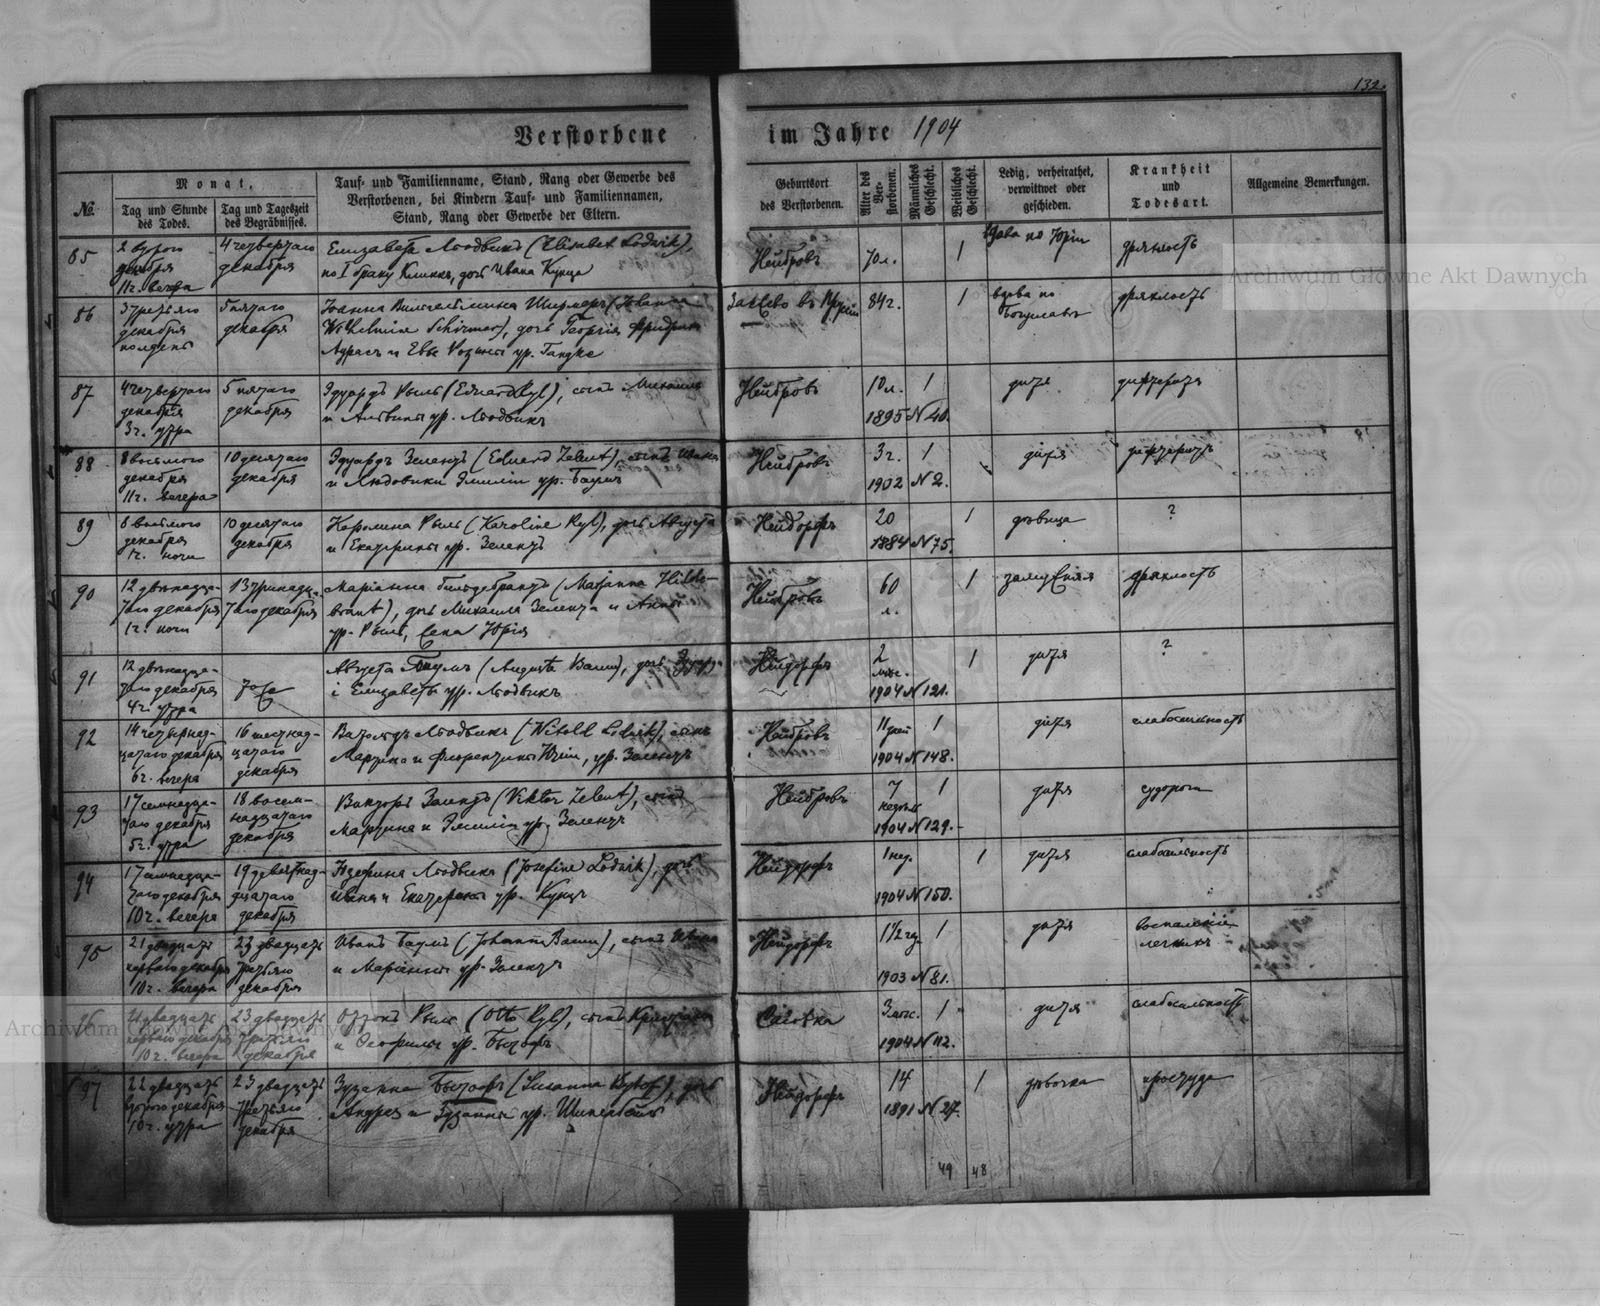 132.
Verstorbene im Jahre 1904
№
Monat,
Tag und Stunde des Todes.
Tag und Tageszeit des Begräbnisses.
Tauf- und Familienname, Stand, Rang oder Gewerbe des
Verstorbenen, bei Kindern Tauf- und Familiennamen,
Stand, Rang oder Gewerbe der Eltern.
Geburtsort
des Verstorbenen.
Alter des Verstorbenen.
Männliches Geschlecht.
Weibliches Geschlecht.
Ledig, verheirathet,
verwittwet oder
geschieden.
Krankheit
und
Todesart.
Allgemeine Bemerkungen.
85
2 второго
декабря
11 ч. вечера
4 четвертаго
декабря
Елизавета Людвикъ (Elisabet Lodwik),
по I браку Клинкъ, дочь Ивана Кунца
Нейбровъ
70 л.
1
вдова по Юріи
дряхлость
86
3 третьяго
декабря
полдень
5 пятаго
декабря
Іоанна Вильгельмина Ширмеръ (Johanna
Wilhelmina Schirmer), дочь Георгія Фридриха
и Евы Розины ур.
84 г.
1
вдова по
Богуславъ
дряхлость
87
4 четвертаго
декабря
3 ч. утра
5 пятаго
декабря
Эдуардъ Рыль (Eduard Ryl), сынъ Михаила
и Альвины ур. Людвикъ
Нейбровъ
10 л.
1895 N 40.
1
дитя
дифтеритъ
88
8 восьмого
декабря
11 ч. вечера
10 десятаго
декабря
Эдуардъ Зелентъ (Eduard Zelent), сынъ Ивана
и Людовики Эмиліи ур. Баумъ
Нейбровъ
3 г.
1902 N 2.
1
дитя
дифтеритъ
89
8 восьмого
декабря
1 ч. ночи
10 десятаго
декабря
Каролина Рыль (Karoline Ryl), дочь Августа
и Екатерины ур. Зелентъ
Нейдорфъ
20
1884 N 75.
1
дѣвица
?
90
12 двѣнадца-
таго декабря
1 ч. ночи
13 тринадца-
таго декабря
Маріанна Гильдебрантъ (Marjanna Hilde-
brant), дочь Михаила Зелента и Анны
ур. Рыль, жена Юрія
Нейбровъ
60
л.
1
замужняя
дряхлость
91
12 двѣнадца-
таго декабря
4 ч. утра
тоже
Августа Баумъ (Augusta Baum), дочь
и Елизаветы ур. Людвикъ
Нейдорфъ
2
мѣс.
1904 N 121.
1
дитя
?
92
14 четырнад-
цатаго декабря
6 ч. вечера
16 шестнад-
цатаго
декабря
Витольдъ Людвикъ (Witold Lodwik), сынъ
Мартина и Флорентины Юліи, ур. Зелентъ
Нейбровъ
11 дней
1904 N 148.
1
дитя
слабосильность
93
17 семнадца-
таго декабря
5 ч. утра
18 восем-
надцатаго
декабря
Викторъ Зелентъ (Viktor Zelent), сынъ
Мартина и Эмиліи ур. Зелентъ
Нейбровъ
7
недѣль
1904 N 129.
1
дитя
судороги
94
17 семнадца-
таго декабря
10 ч. вечера
19 девятнад-
цатаго
декабря
Юзефина Людвикъ (Josefine Lodwik), дочь
Ивана и Екатерины ур. Кунцъ
Нейдорфъ
1 нед.
1904 N 150.
1
дитя
слабосильность
95
21 двадцать
перваго декабря
10 ч. вечера
23 двадцать
третьяго
декабря
Иванъ Баумъ (Johann Baum), сынъ Ивана
и Маріанны ур. Зелентъ
Нейдорфъ
1 1/2 г.
1903 N 81.
1
дитя
воспаленіе
легкихъ
96
21 двадцать
перваго декабря
10 ч. вечера
23 двадцать
третьяго
декабря
Оттонъ Рыль (Otto Ryl), сынъ
и Теофилы ур. Бытофъ
3 мѣс.
1904 N 112.
1
дитя
слабосильность
97
22 двадцать
второго декабря
10 ч. утра
23 двадцать
третьяго
декабря
Зузанна Бытофъ (Susanna Bytof), дочь
Андрея и Зузанны ур.
Нейдорфъ
14
1891 N 27.
1
дѣвочка
простуда
49 48
Archiwum Główne Akt Dawnych
Archiwum Główne Akt Dawnych